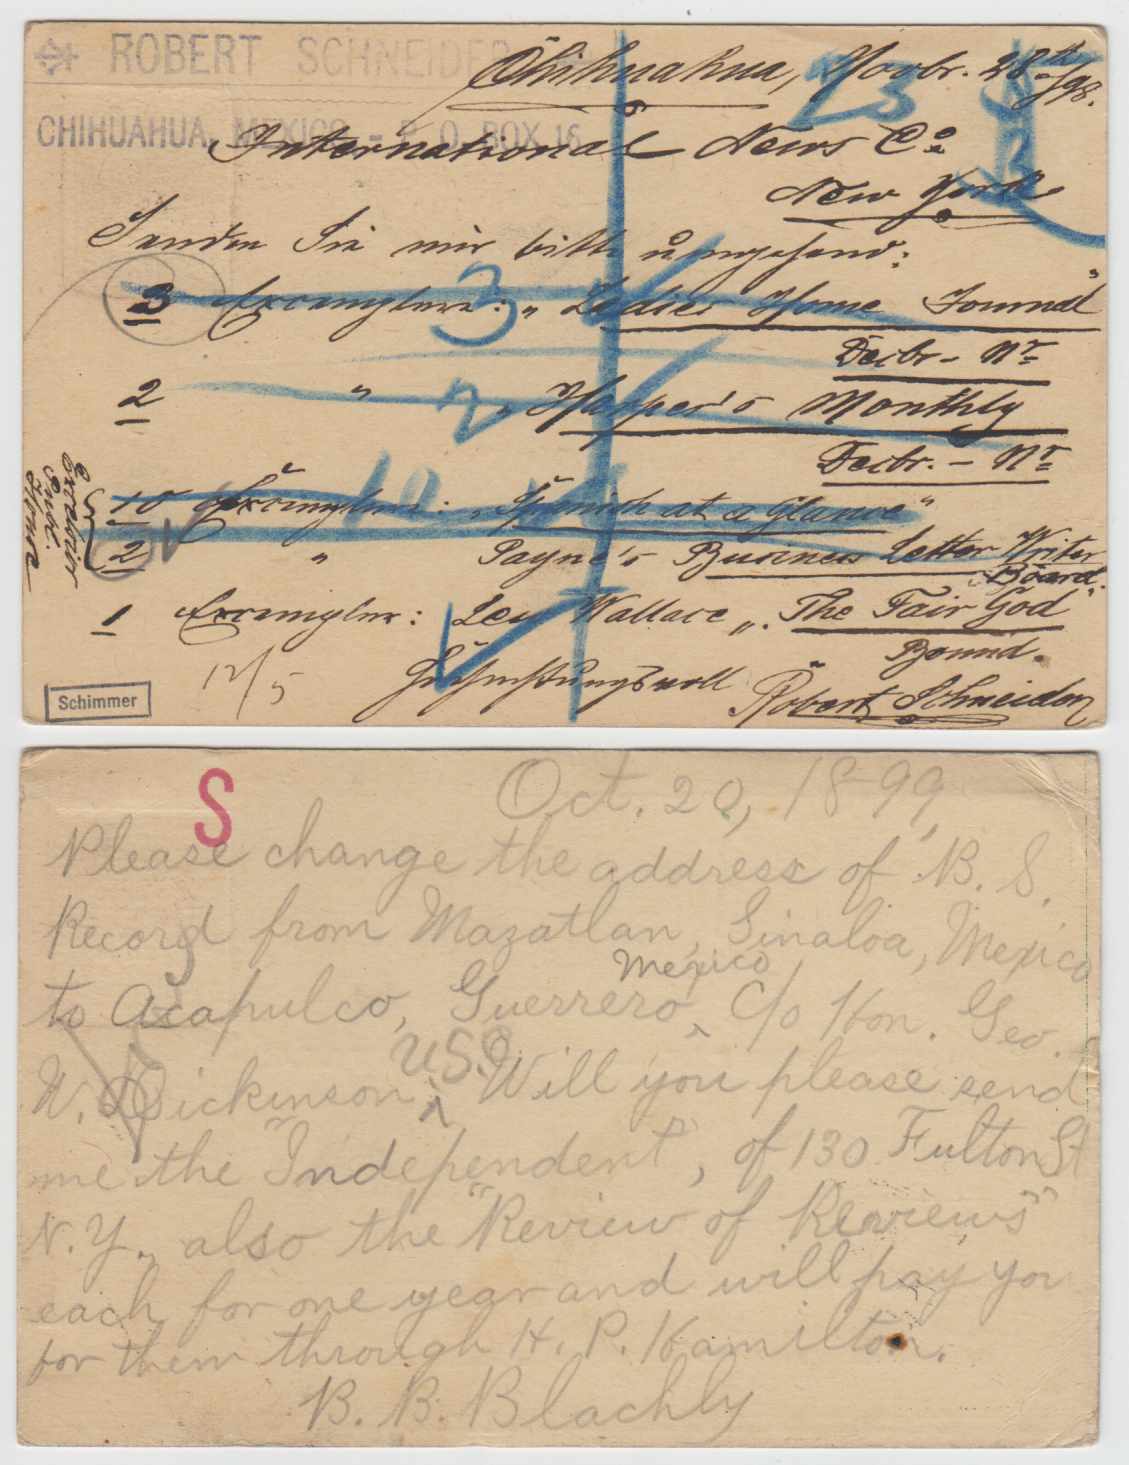 ROBERT SCHNEIDER
CHIHUAHUA, MEXICO - P. O. BOX 16
Chihuahua, Novbr. 28th/98.
23
International News Co.
New York
Senden Sie mir bitte umgehend:
3 Exemplare: „Ladies Home Journal"
3
Decbr - Nr
2 " „Harper's Monthly
2
Decbr. - Nr
10 Exemplare: „Spanish at a Glance"
10
2 " Payne's Business Letter Writer
Board."
1 Exemplar: Lew Wallace „The Fair God
Bound.
12/5
Hochachtungsvoll
Robert Schneider
Schimmer
S
Oct. 20, 1899,
Please change the address of B. S.
Record from Mazatlan, Sinaloa, Mexico
to Acapulco, Guerrero, Mexico c/o Hon. Geo.
W. Dickinson. Will you please send
me the "Independent", of 130 Fulton St
N. Y., also the "Review of Reviews"
each for one year and will pay you
for them through H. P. Hamilton.
B. B. Blachly